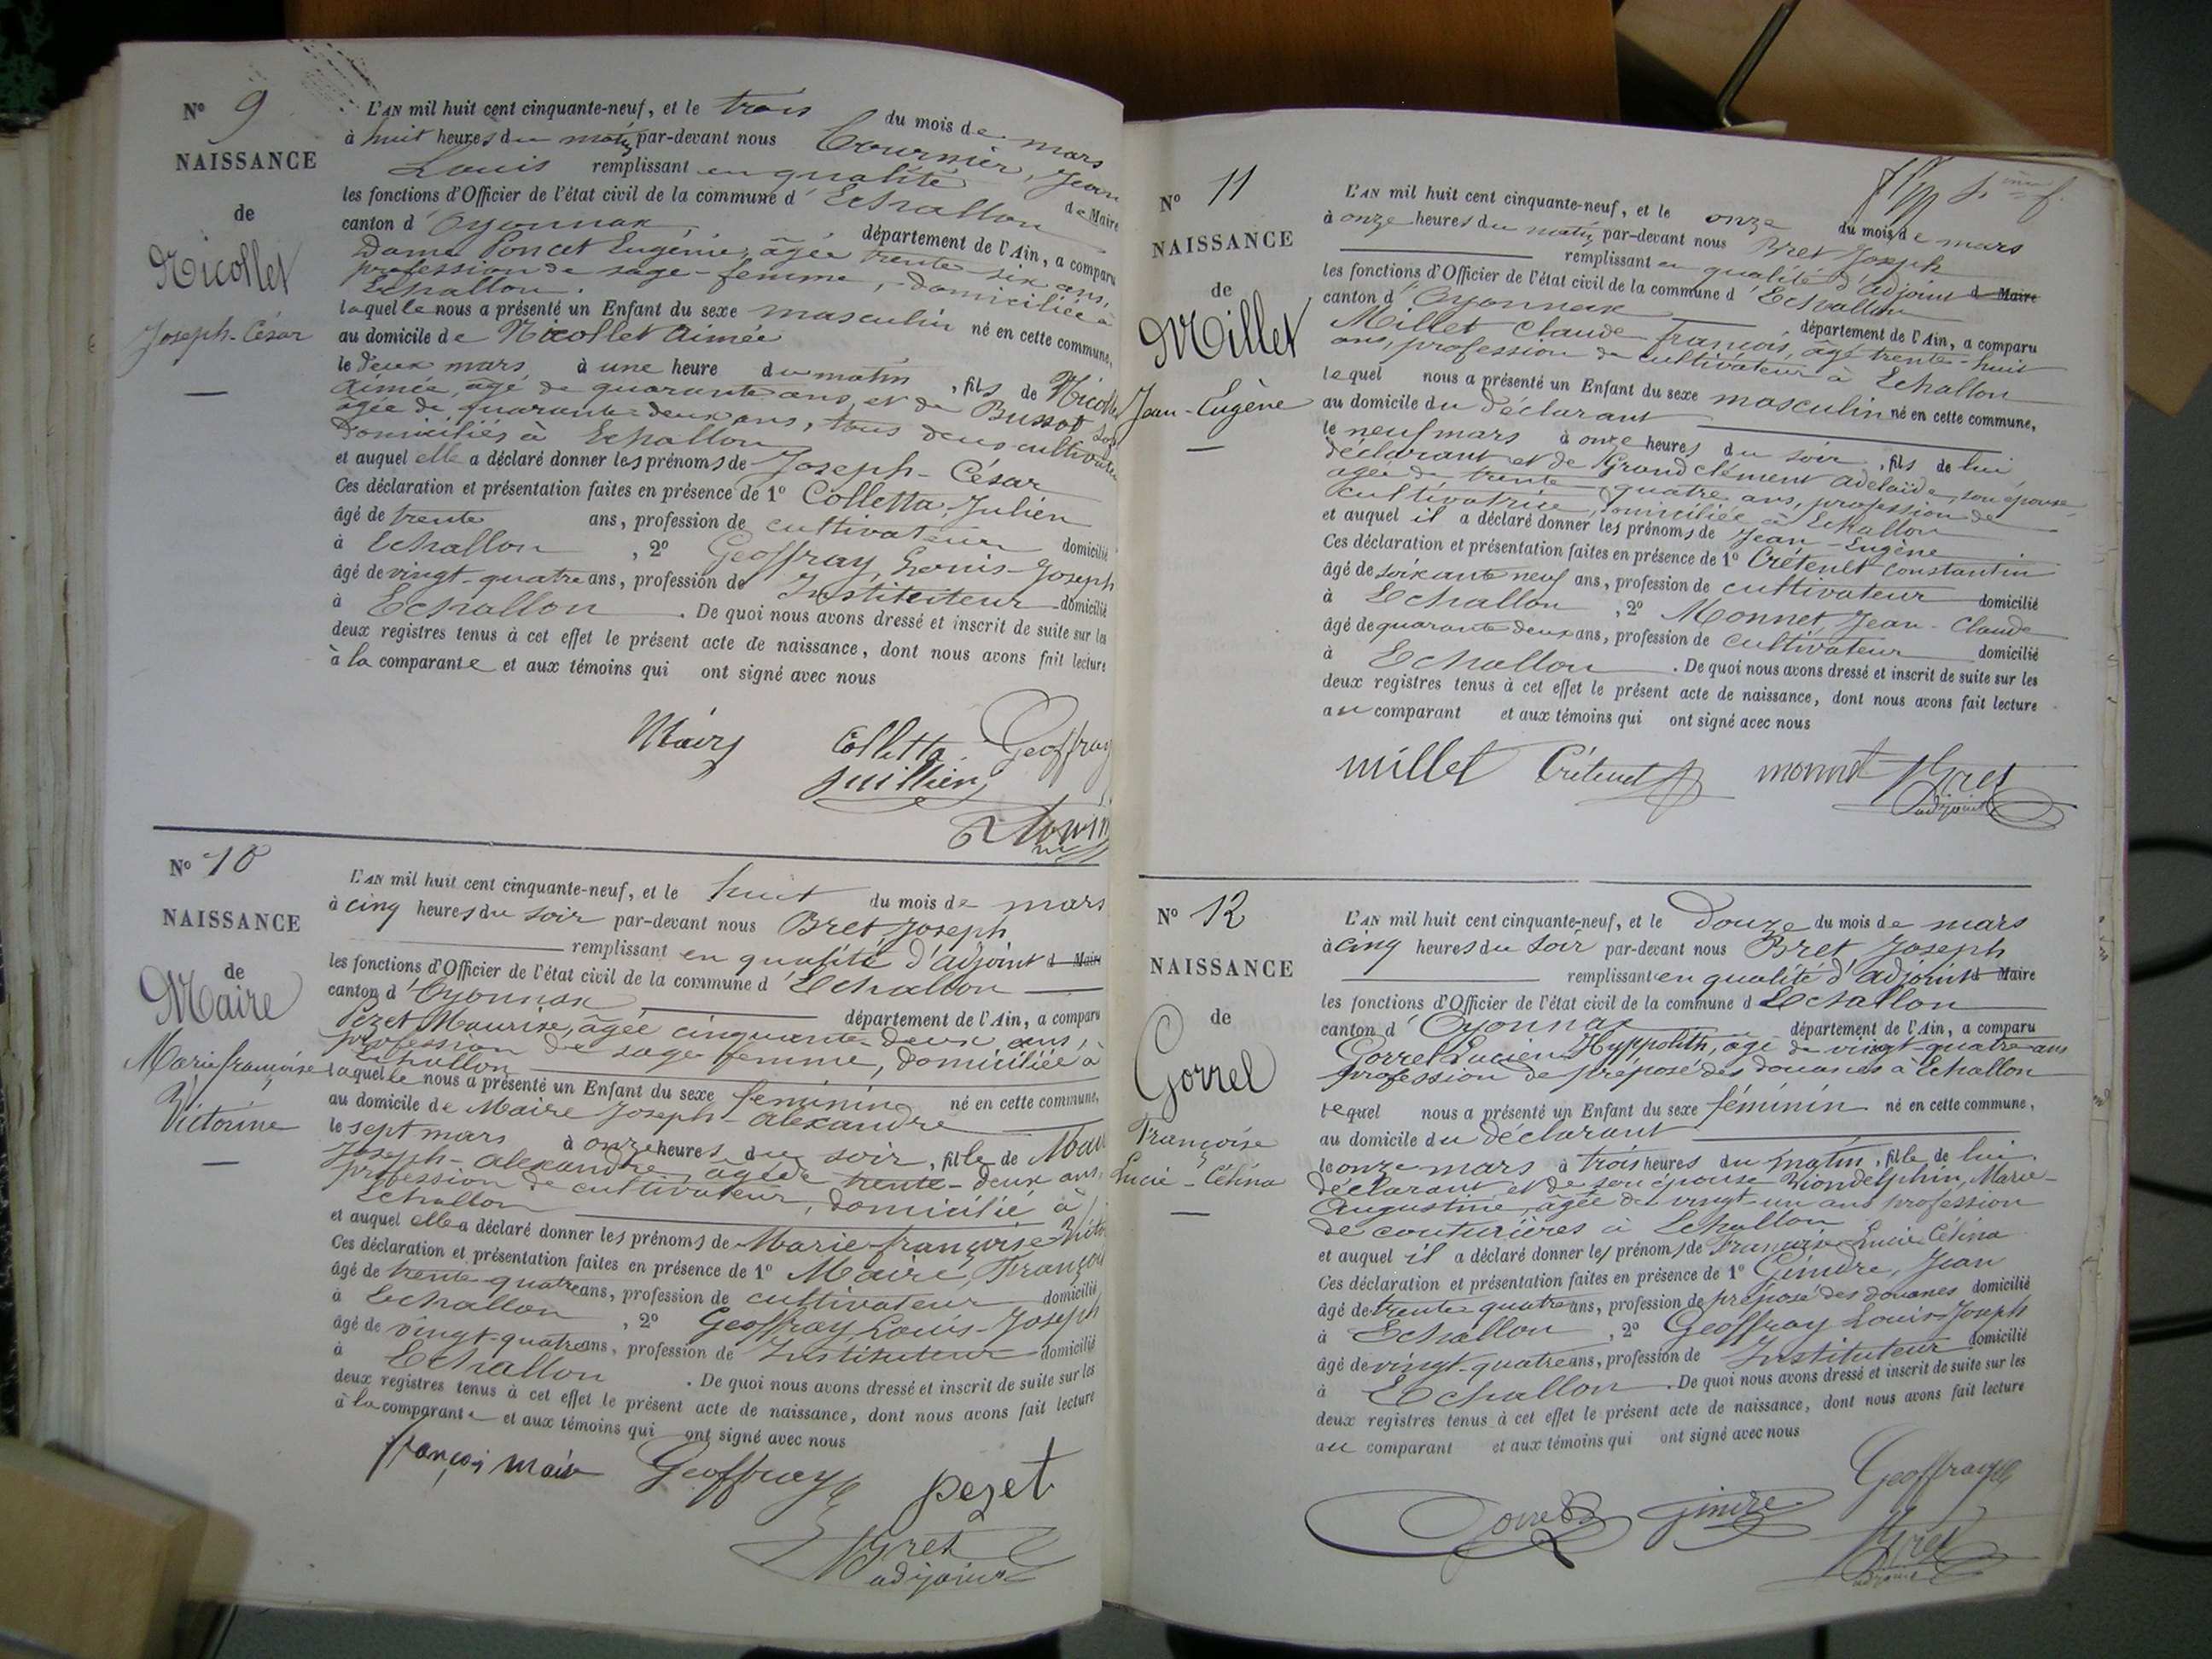 N° 9
NAISSANCE
de
Nicollet
Joseph-César
L'AN mil huit cent cinquante-neuf, et le trois du mois de mars
à huit heures du matin par-devant nous Tournier, Jean
Louis remplissant en qualité de Maire
les fonctions d'Officier de l'état civil de la commune d'Echallon
canton d'Oyonnax, département de l'Ain, a comparu
Dame Poncet Eugénie, âgée trente-six ans,
profession de sage-femme, domiciliée à
Echallon.
laquelle nous a présenté un Enfant du sexe masculin né en cette commune,
au domicile de Nicollet Aimée
le deux mars à une heure du matin, fils de Nicollet
Aimée, âgé de quarante ans, et de Bussod
âgée de quarante-deux ans, tous deux cultivate
domiciliés à Echallon
et auquel elle a déclaré donner les prénoms de Joseph-César
Ces déclaration et présentation faites en présence de 1° Colletta, Julien
âgé de trente ans, profession de cultivateur domicilié
à Echallon, 2° Geoffray, Louis-Joseph
âgé de vingt-quatre ans, profession de Instituteur domicilié
à Echallon. De quoi nous avons dressé et inscrit de suite sur les
deux registres tenus à cet effet le présent acte de naissance, dont nous avons fait lecture
à la comparante et aux témoins qui ont signé avec nous
Colletta Geoffray
juillien
N° 10
NAISSANCE
de
Maire
Marie françoise
Victorine
L'AN mil huit cent cinquante-neuf, et le huit du mois de mars
à cinq heures du soir par-devant nous Bret Joseph
remplissant en qualité d'adjoint d Maire
les fonctions d'Officier de l'état civil de la commune d'Echallon
canton d'Oyonnax département de l'Ain, a comparu
Pezet Maurize, âgée cinquante-deux ans,
profession de sage femme, domiciliée à
Echallon
laquelle nous a présenté un Enfant du sexe féminine né en cette commune,
au domicile de Maire Joseph-Alexandre
le sept mars à onze heures du soir, fille de Mai
Joseph-Alexandre, âgé de trente-deux ans,
profession de cultivateur, domicilié à
Echallon
et auquel elle a déclaré donner les prénoms de Marie-françoise Victo
Ces déclaration et présentation faites en présence de 1° Maire, François
âgé de trente quatre ans, profession de cultivateur domicilié
à Echallon, 2° Geoffray, Louis-Joseph
âgé de vingt-quatre ans, profession de Instituteur domicilié
à Echallon. De quoi nous avons dressé et inscrit de suite sur les
deux registres tenus à cet effet le présent acte de naissance, dont nous avons fait lecture
à la comparante et aux témoins qui ont signé avec nous
françois maire Geoffray pezet
Bret
adjoint
N° 11
NAISSANCE
de
Millet
Jean-Eugène
L'AN mil huit cent cinquante-neuf, et le onze du mois de mars
à onze heures du matin par-devant nous Bret Joseph
remplissant en qualité d'adjoint d Maire
les fonctions d'Officier de l'état civil de la commune d'Echallon
canton d'Oyonnax département de l'Ain, a comparu
Millet Claude françois, âgé trente-huit
ans, profession de cultivateur à Echallon
lequel nous a présenté un Enfant du sexe masculin né en cette commune,
au domicile du déclarant
le neuf mars à onze heures du soir, fils de lui
déclarant et de Grandclément Adelaïde, son épouse
âgée de trente quatre ans, profession de
cultivatrice, domiciliée à Echallon
et auquel il a déclaré donner les prénoms de Jean-Eugène
Ces déclaration et présentation faites en présence de 1° Crétenet Constantin
âgé de soixante neuf ans, profession de cultivateur domicilié
à Echallon, 2° Monnet Jean-Claude
âgé de quarante deux ans, profession de cultivateur domicilié
à Echallon. De quoi nous avons dressé et inscrit de suite sur les
deux registres tenus à cet effet le présent acte de naissance, dont nous avons fait lecture
au comparant et aux témoins qui ont signé avec nous
millet Crétenet monnet Bret
adjoint
N° 12
NAISSANCE
de
Gorrel
Françoise
Lucie-Célina
L'AN mil huit cent cinquante-neuf, et le Douze du mois de mars
à cinq heures du soir par-devant nous Bret Joseph
remplissant en qualité d'adjoint d Maire
les fonctions d'Officier de l'état civil de la commune d Echallon
canton d'Oyonnax département de l'Ain, a comparu
Gorrel Lucien Hyppolith, âgé de vingt-quatre ans
profession de préposé des douanes à Echallon
lequel nous a présenté un Enfant du sexe féminin né en cette commune,
au domicile du déclarant
le onze mars à trois heures du matin, fille de lui
déclarant et de son épouse Riondelphin, Marie-
Augustine, âgée de vingt-un ans profession
de couturières à Echallon
et auquel il a déclaré donner les prénoms de Françoise Lucie Célina
Ces déclaration et présentation faites en présence de 1° Gindre, Jean
âgé de trente quatre ans, profession de préposé des douanes domicilié
à Echallon, 2° Geoffray Louis-Joseph
âgé de vingt-quatre ans, profession de Instituteur domicilié
à Echallon. De quoi nous avons dressé et inscrit de suite sur les
deux registres tenus à cet effet le présent acte de naissance, dont nous avons fait lecture
au comparant et aux témoins qui ont signé avec nous
Geoffray
Gorrel gindre
Bret
adjoint